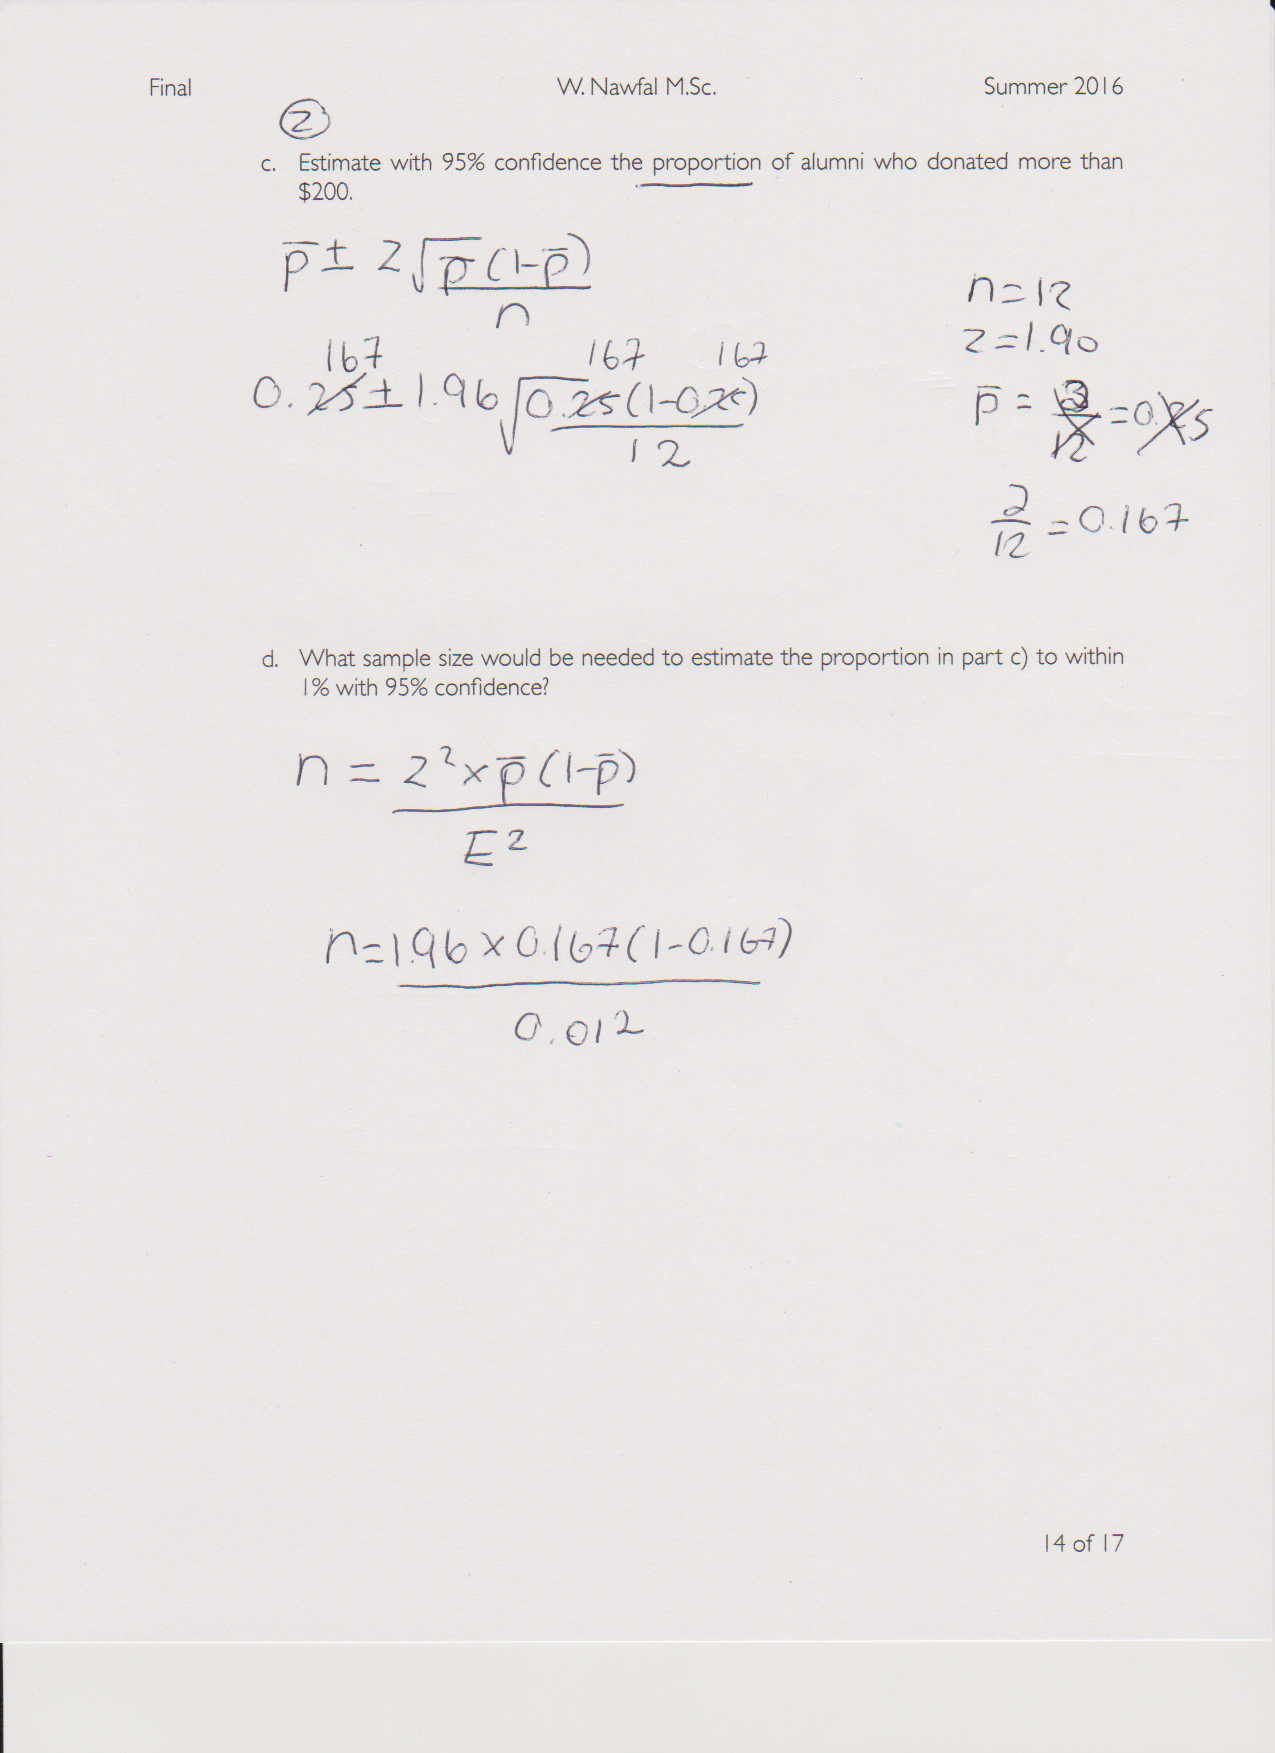 Final W. Nawfal M.Sc. Summer 2016
2
c. Estimate with 95% confidence the proportion of alumni who donated more than
$200.
p̅ ± z√p̅(1-p̅)
n
n=12
z=1.90
167 167 167
0.25 ± 1.96 √0.25(1-0.25)
12
p̅ = 3/12 = 0.25
2/12 = 0.167
d. What sample size would be needed to estimate the proportion in part c) to within
1% with 95% confidence?
n = z² × p̅(1-p̅)
E²
n=1.96 × 0.167(1-0.167)
0.01²
14 of 17